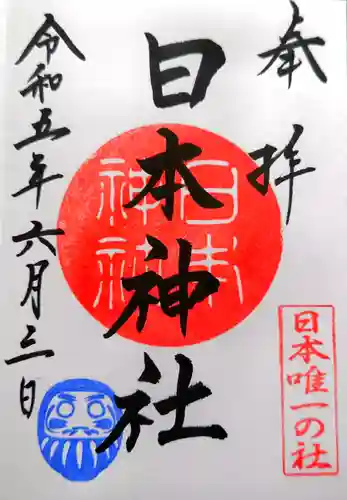 奉拝
日本神社
令和五年六月三日
日本唯一の社
日本
神社